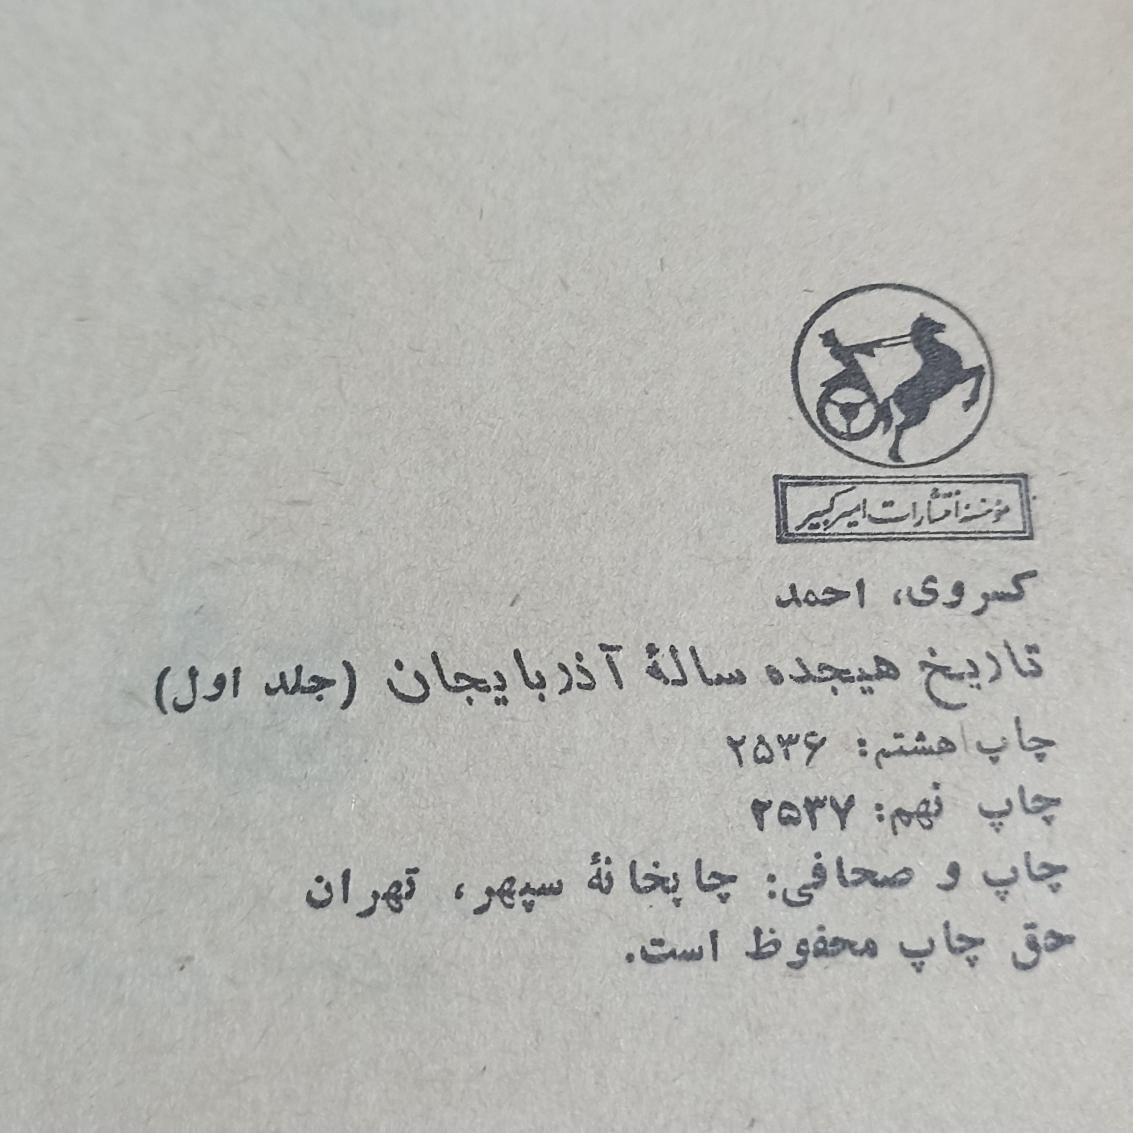 مؤسسه انتشارات امیرکبیر
کسروی، احمد
تاریخ هیجده سالهٔ آذربایجان (جلد اول)
چاپ هشتم: ۲۵۳۶
چاپ نهم: ۲۵۳۷
چاپ و صحافی: چاپخانهٔ سپهر، تهران
حق چاپ محفوظ است.